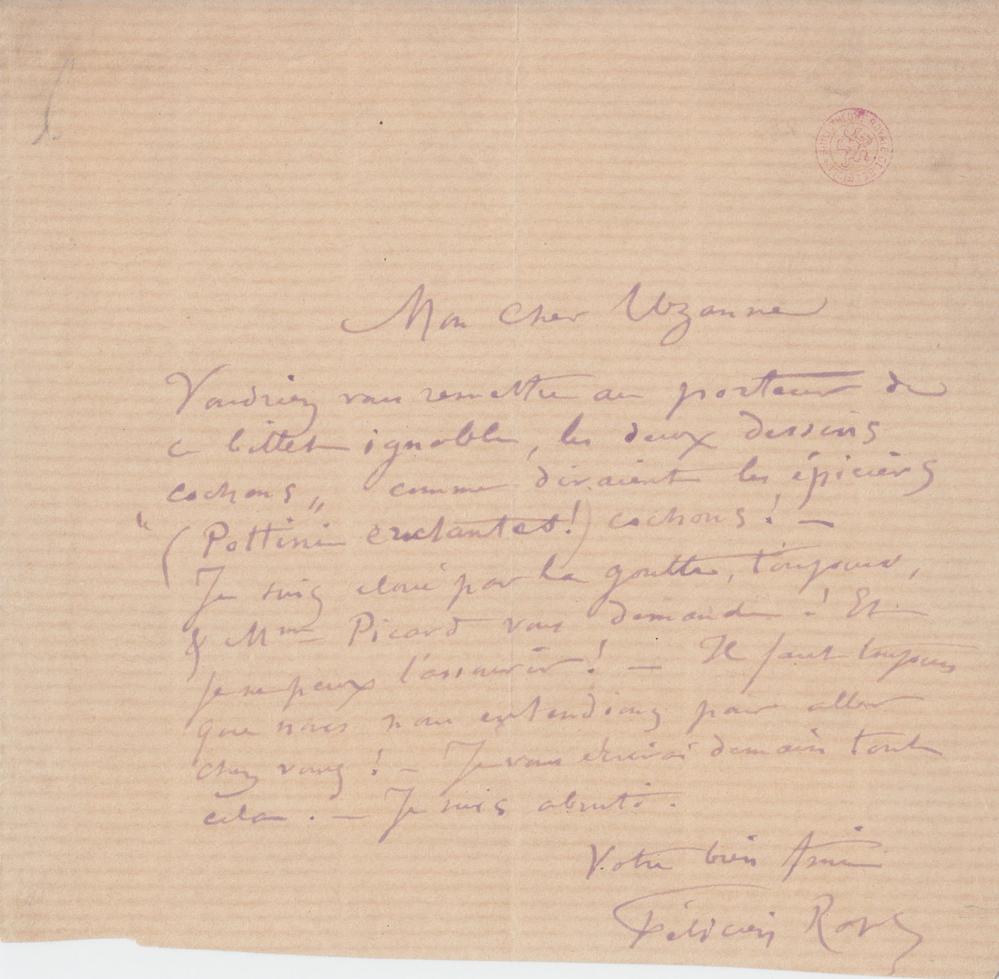 Mon cher Uzanne
Voudriez vous remettre au porteur de
ce billet ignoble, les deux dessins
cochons„ comme diraient les épiciers
“ (Pottini enchanté!) cochons! —
Je suis cloué par la goutte, toujours,
& Mme Picard vous demande! Et
je ne peux l'assouvir! — Il faut toujours
que nous nous entendions pour aller
chez vous! — Je vous écrirai demain tout
cela. — Je suis abruti.
Votre bien Ami
Félicien Rops